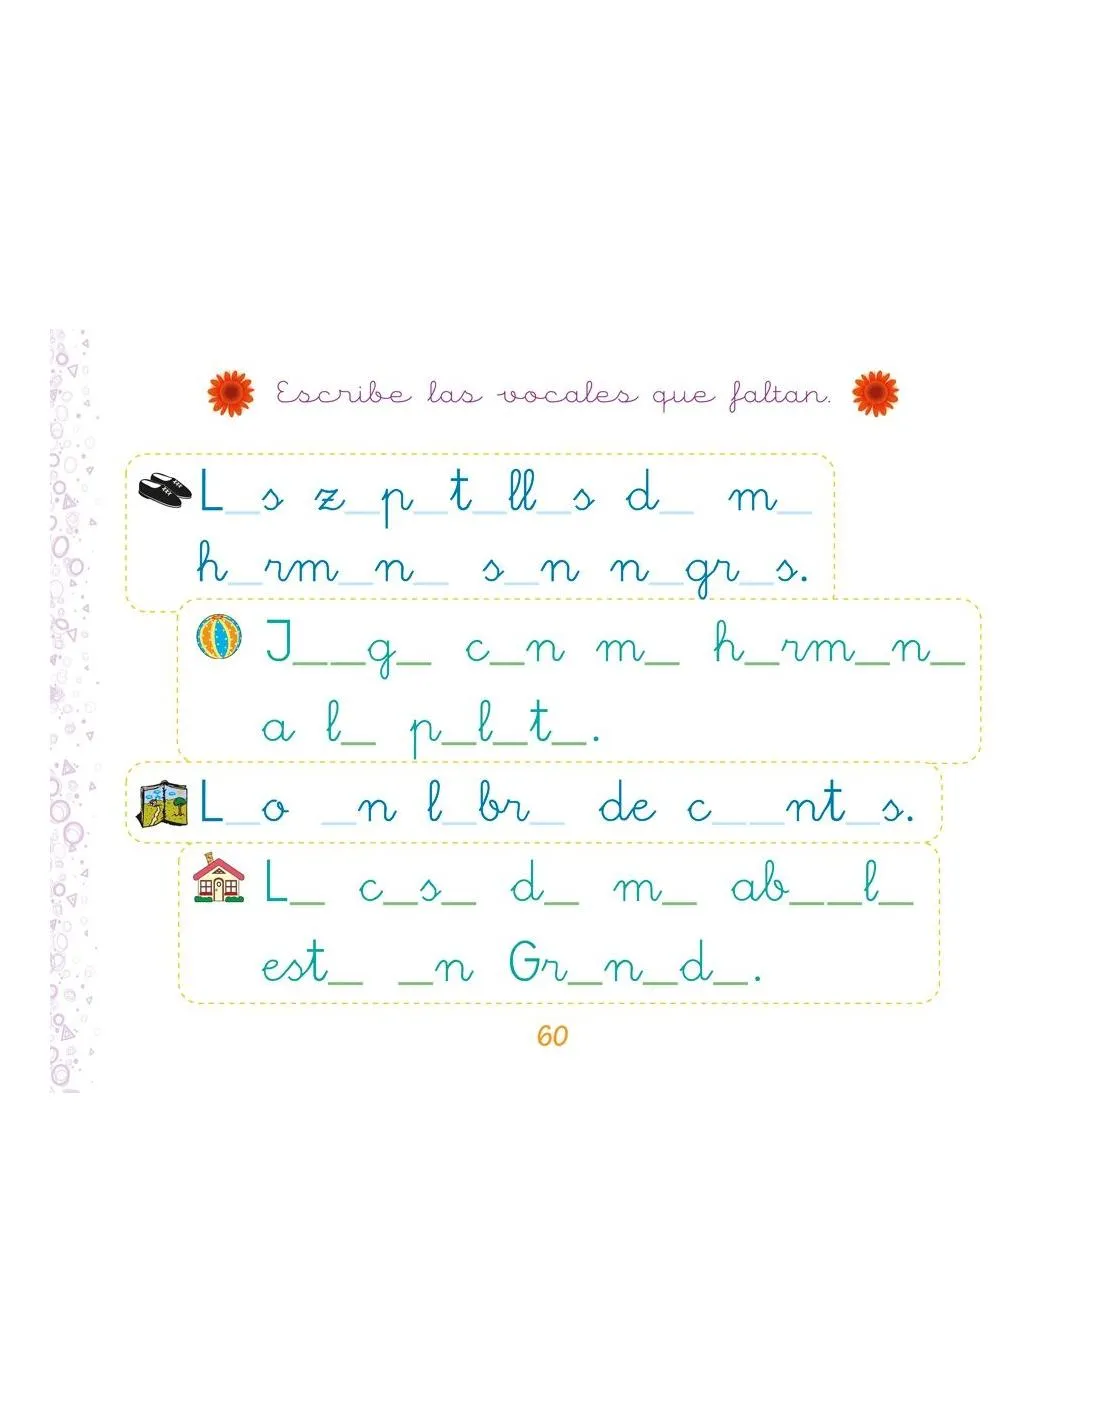 Escribe las vocales que faltan.
L_s z_p_t_ll_s d_ m_
h_rm_n_ s_n n_gr_s.
J__g_ c_n m_ h_rm_n_
a l_ p_l_t_.
L_o _n l_br_ de c__nt_s.
L_ c_s_ d_ m_ ab__l_
est_ _n Gr_n_d_.
60